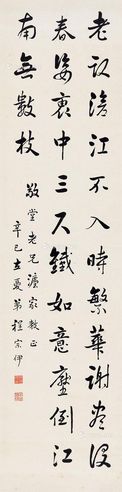 老滄江不入時繁華謝盡沒
春姿中三尺鐵如意壓倒江
南無數枝
敬堂老兄灋家教正
辛巳立夏弟程宗伊